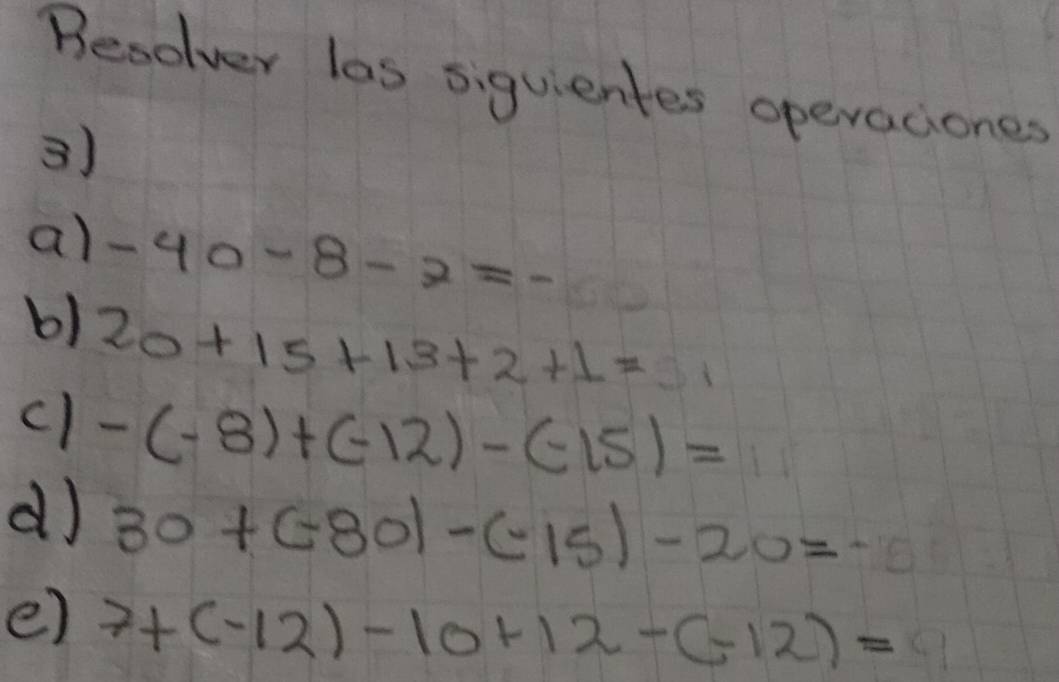 Resolver las siguientes operaciones
3)
a) -40-8-2=-
b) 20+15+13+2+1=
c) -(-8)+(-12)-(-15)=
d) 30+(-80)-(-15)-20=-
e) 7+(-12)-10+12-(-12)=